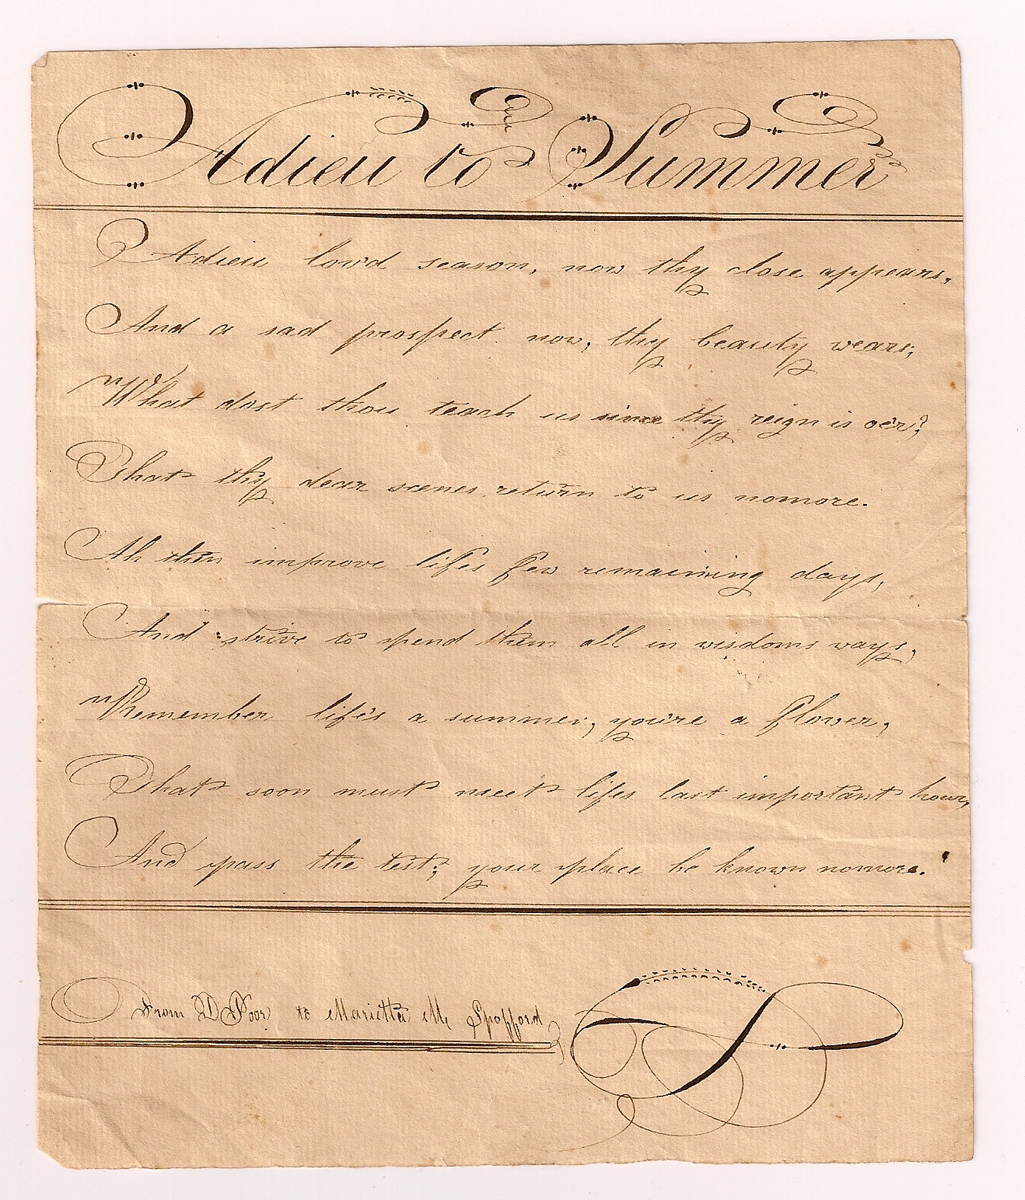 Adieu to Summer
Adieu lov'd season, now thy close appears,
And a sad prospect now, thy beauty wears;
What dost thou teach us since thy reign is o'er?
That thy dear scenes return to us nomore.
Ah then improve lifes few remaining days,
And strive to spend them all in wisdoms ways,
Remember life's a summer, you're a flower,
That soon must meet lifes last important hour,
And pass the test; your place be known nomore.
From D Poor to Marietta M, Spofford